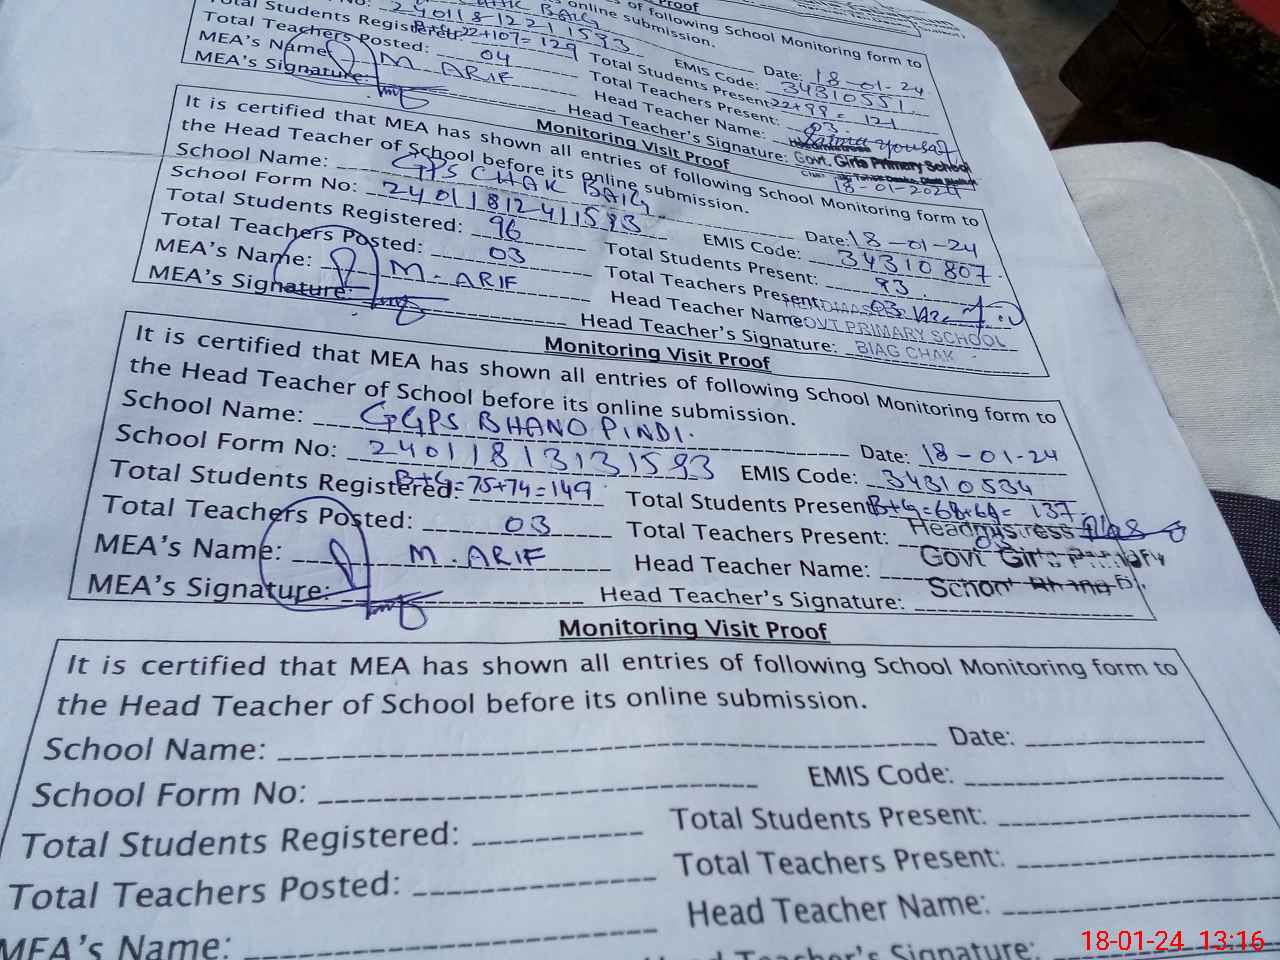 Proof
of following School Monitoring form to
online submission.
CHAK BAIG
No: 2401181221593 Date: 18-01-24
Total Students Registered: B+G=22+107=129 EMIS Code: 34310551
Total Teachers Posted: 04 Total Students Present: 22+99=121
MEA's Name: M. ARIF Total Teachers Present: 03
MEA's Signature: Head Teacher Name:
Head Teacher's Signature: Govt. Girls Primary School
18-01-2024
Monitoring Visit Proof
It is certified that MEA has shown all entries of following School Monitoring form to
the Head Teacher of School before its online submission.
School Name: GPS CHAK BAIG Date: 18-01-24
School Form No: 24011812411593 EMIS Code: 34310807
Total Students Registered: 96 Total Students Present: 93
Total Teachers Posted: 03 Total Teachers Present: 03
MEA's Name: M. ARIF Head Teacher Name: GOVT PRIMARY SCHOOL
MEA's Signature: Head Teacher's Signature: BIAG CHAK
Monitoring Visit Proof
It is certified that MEA has shown all entries of following School Monitoring form to
the Head Teacher of School before its online submission.
School Name: GGPS BHANO PINDI. Date: 18-01-24
School Form No: 24011813131593 EMIS Code: 34310534
Total Students Registered: B+G=75+74=149 Total Students Present: B+G=68+69=137
Total Teachers Posted: 03 Total Teachers Present: 03 Headmistress
MEA's Name: M. ARIF Head Teacher Name: Govt Girls Primary
MEA's Signature: Head Teacher's Signature: School
Monitoring Visit Proof
It is certified that MEA has shown all entries of following School Monitoring form to
the Head Teacher of School before its online submission.
School Name: Date:
School Form No: EMIS Code:
Total Students Registered: Total Students Present:
Total Teachers Posted: Total Teachers Present:
MEA's Name: Head Teacher Name:
Head Teacher's Signature:
18-01-24 13:16